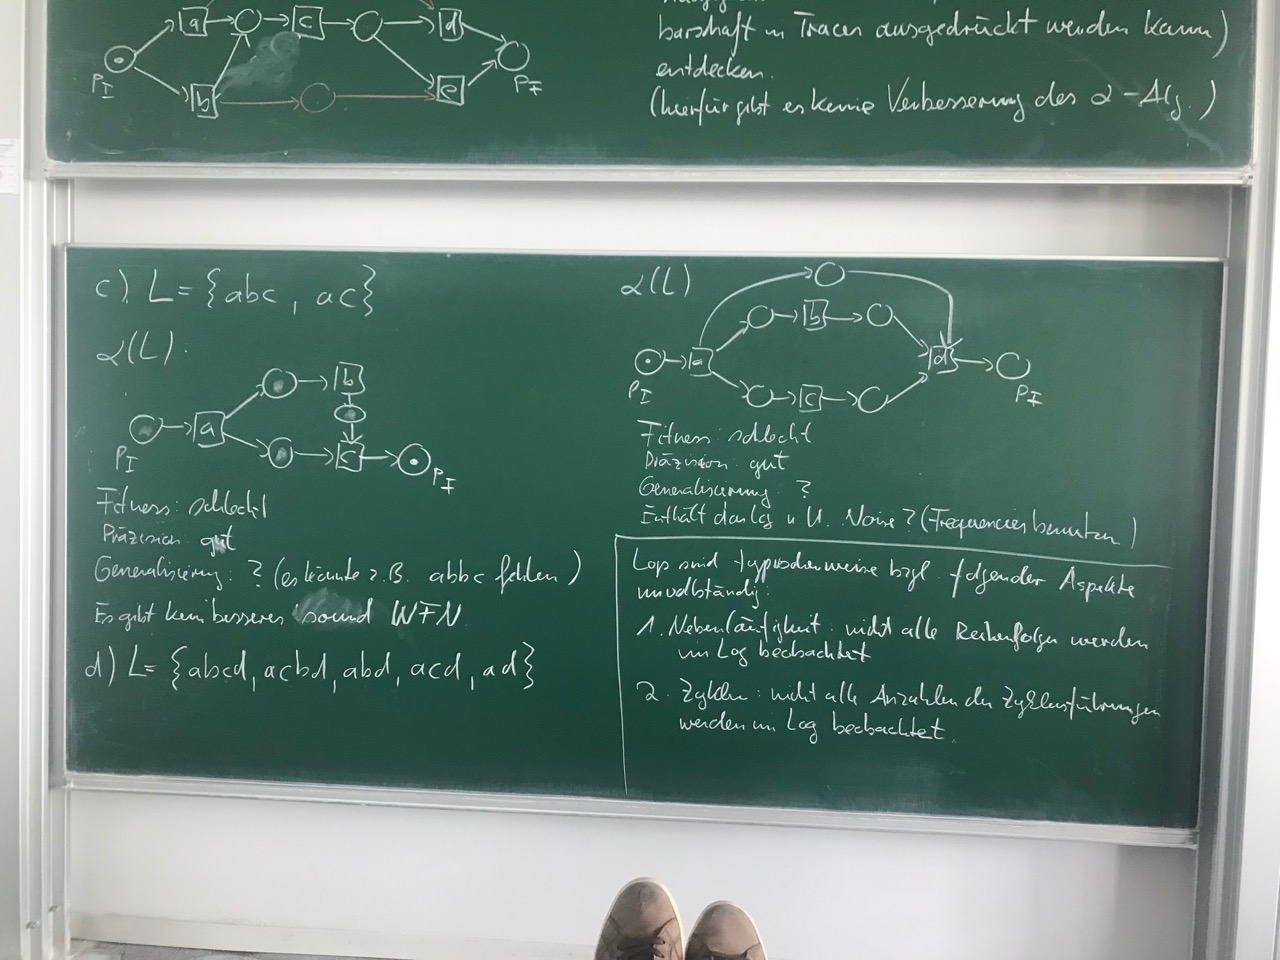 a
c
d
b
e
PI
PF
barschaft in Traces ausgedrückt werden kann)
entdecken.
(hierfür gibt es keine Verbesserung des α-Alg.)
c) L = {abc, ac}
α(L):
PI
a
b
c
PF
Fitness: schlecht
Präzision gut
Generalisierung: ? (es könnte z.B. abbc fehlen)
Es gibt kein besseres sound WFN
d) L = {abcd, acbd, abd, acd, ad}
α(L)
PI
a
b
c
d
PF
Fitness: schlecht
Präzision: gut
Generalisierung: ?
Enthält das Log u.U. Noise? (Frequencies benutzen)
Logs sind typischerweise bzgl. folgender Aspekte
unvollständig:
1. Nebenläufigkeit: nicht alle Reihenfolgen werden
im Log beobachtet
2. Zyklen: nicht alle Anzahlen der
werden im Log beobachtet.